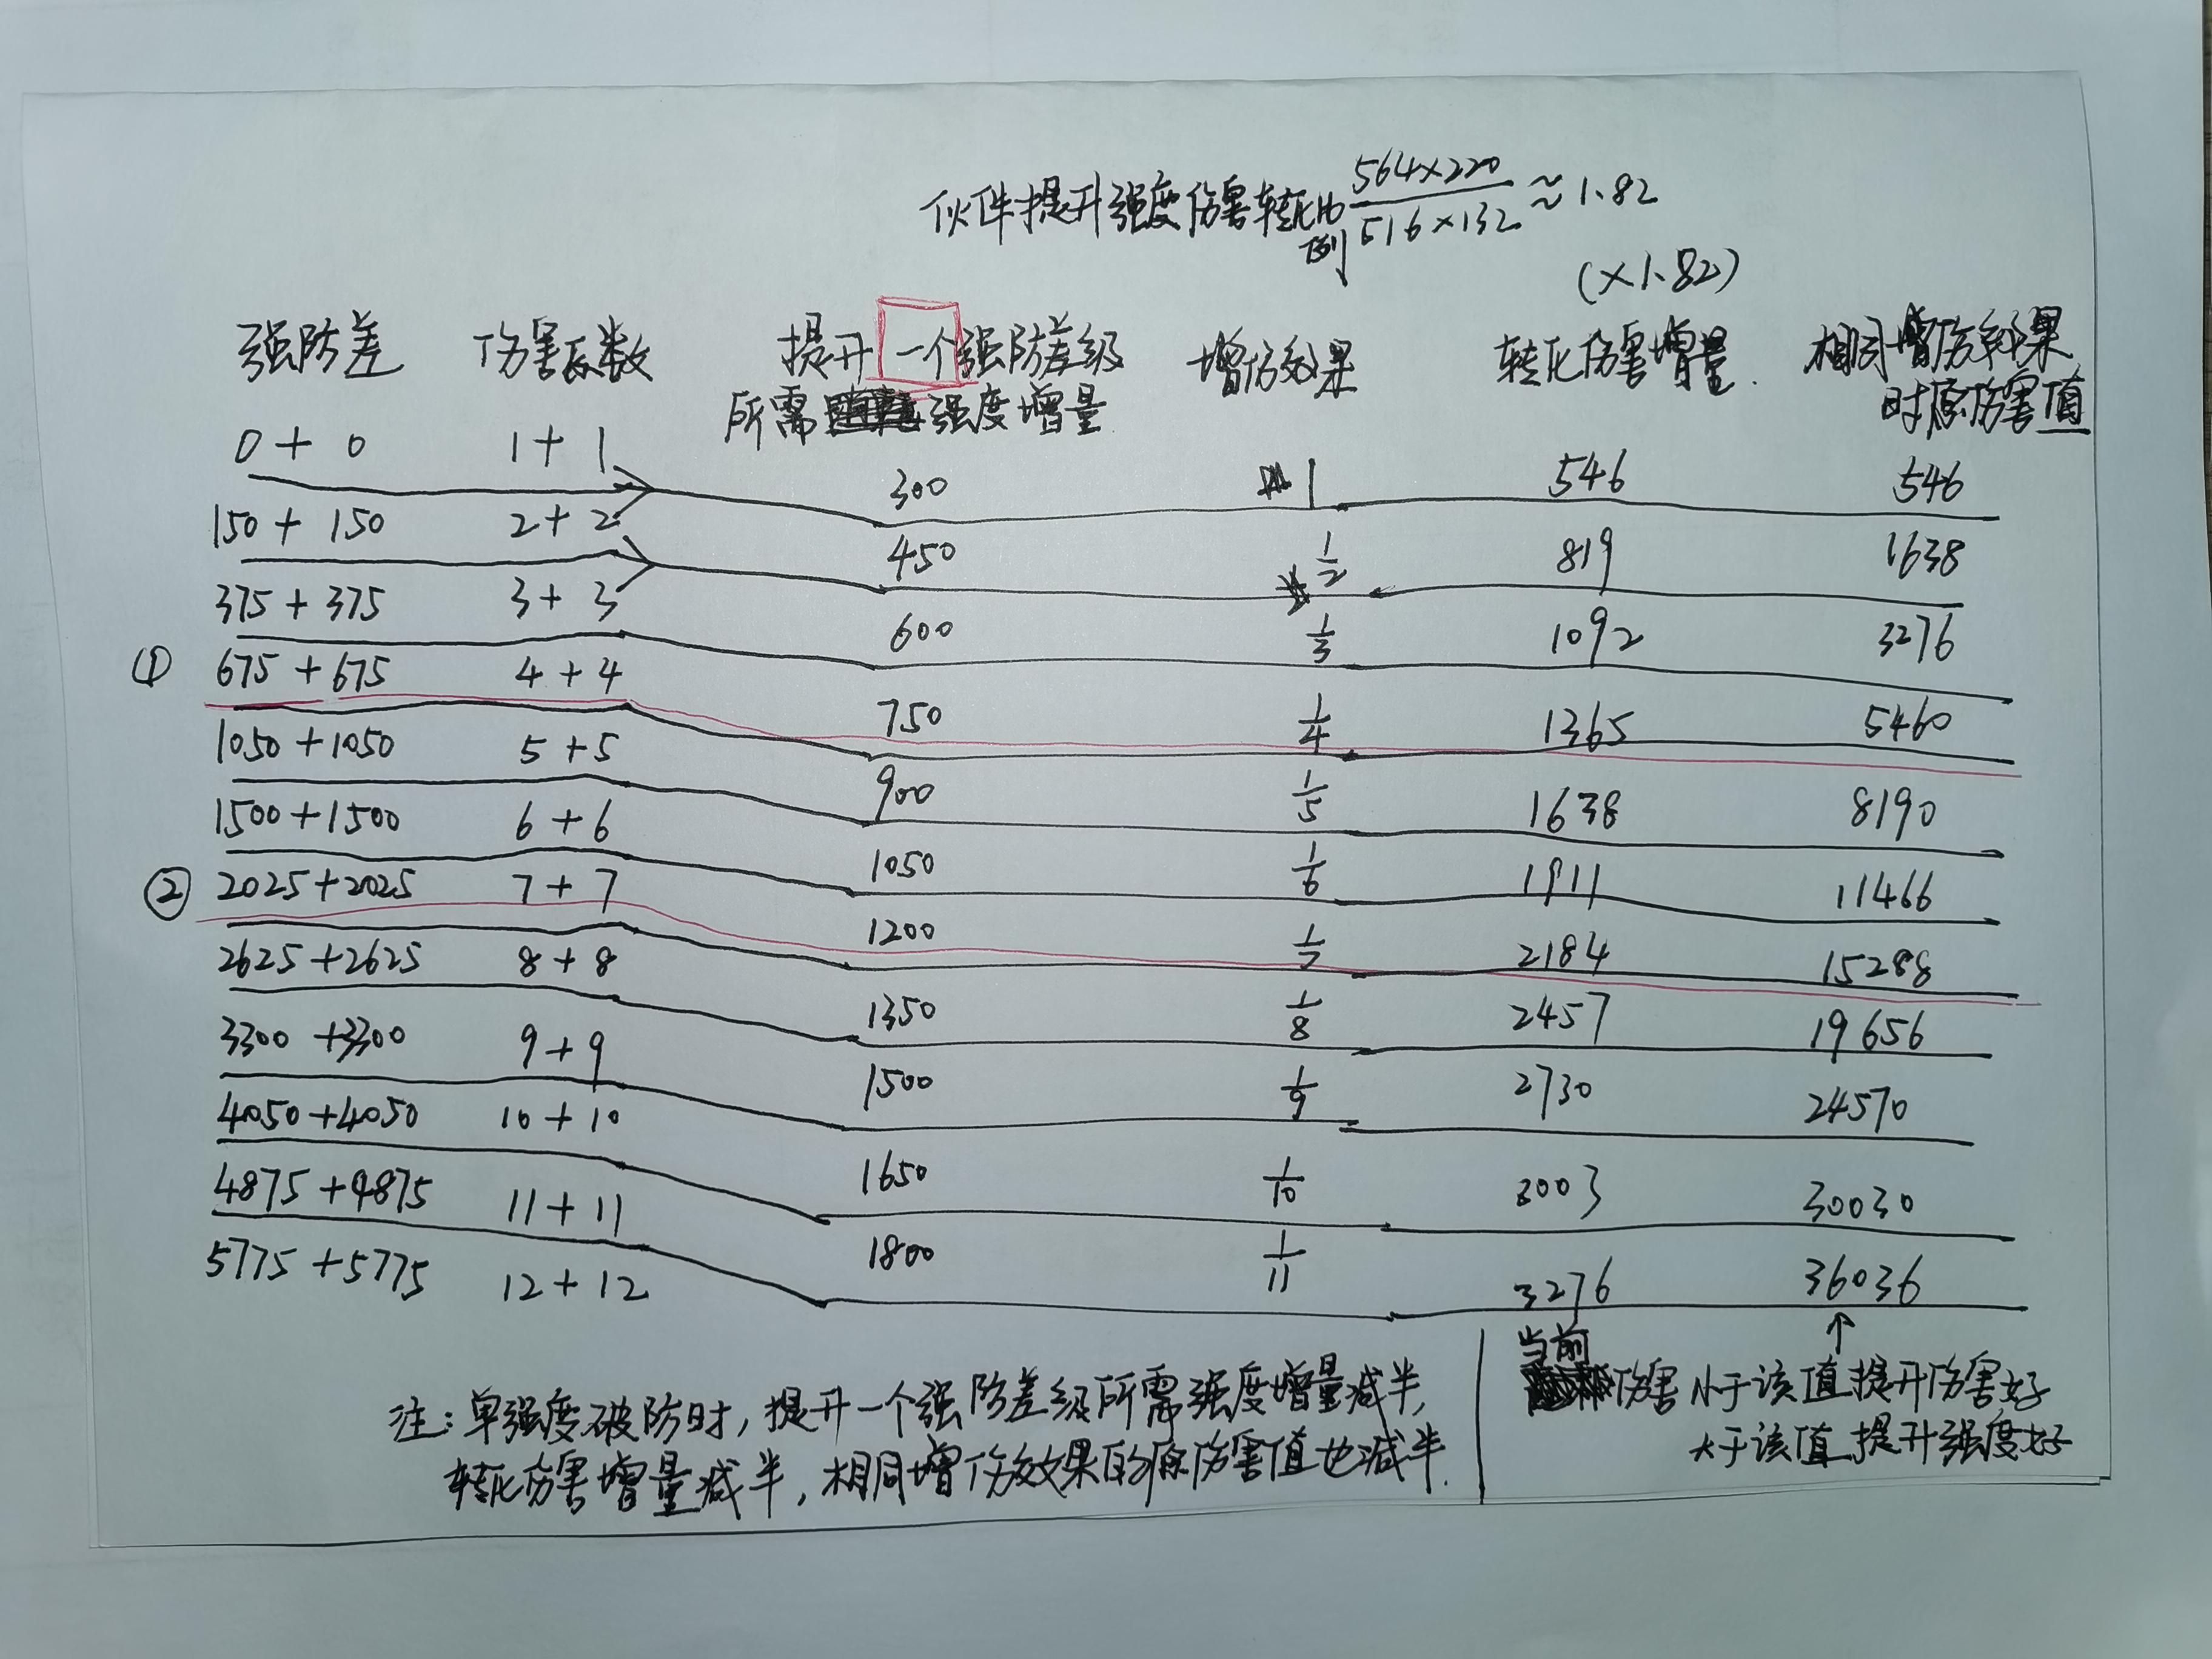 伙伴提升强度伤害转化比例 564×220/516×132 ≈ 1.82
(×1.82)
强防差 伤害系数 提升一个强防差级所需强度增量 增伤效果 转化伤害增量 相同增伤效果时原伤害值
0 + 0 1 + 1
300 1 546 546
150 + 150 2 + 2
450 1/2 819 1638
375 + 375 3 + 3
600 1/3 1092 3276
① 675 + 675 4 + 4
750 1/4 1365 5460
1050 + 1050 5 + 5
900 1/5 1638 8190
1500 + 1500 6 + 6
1050 1/6 1911 11466
② 2025 + 2025 7 + 7
1200 1/7 2184 15288
2625 + 2625 8 + 8
1350 1/8 2457 19656
3300 + 3300 9 + 9
1500 1/9 2730 24570
4050 + 4050 10 + 10
1650 1/10 3003 30030
4875 + 4875 11 + 11
1800 1/11 3276 36036
5775 + 5775 12 + 12
注:单强度破防时,提升一个强防差级所需强度增量减半,
转化伤害增量减半,相同增伤效果的原伤害值也减半.
↑
当前伤害小于该值提升伤害好
大于该值提升强度好